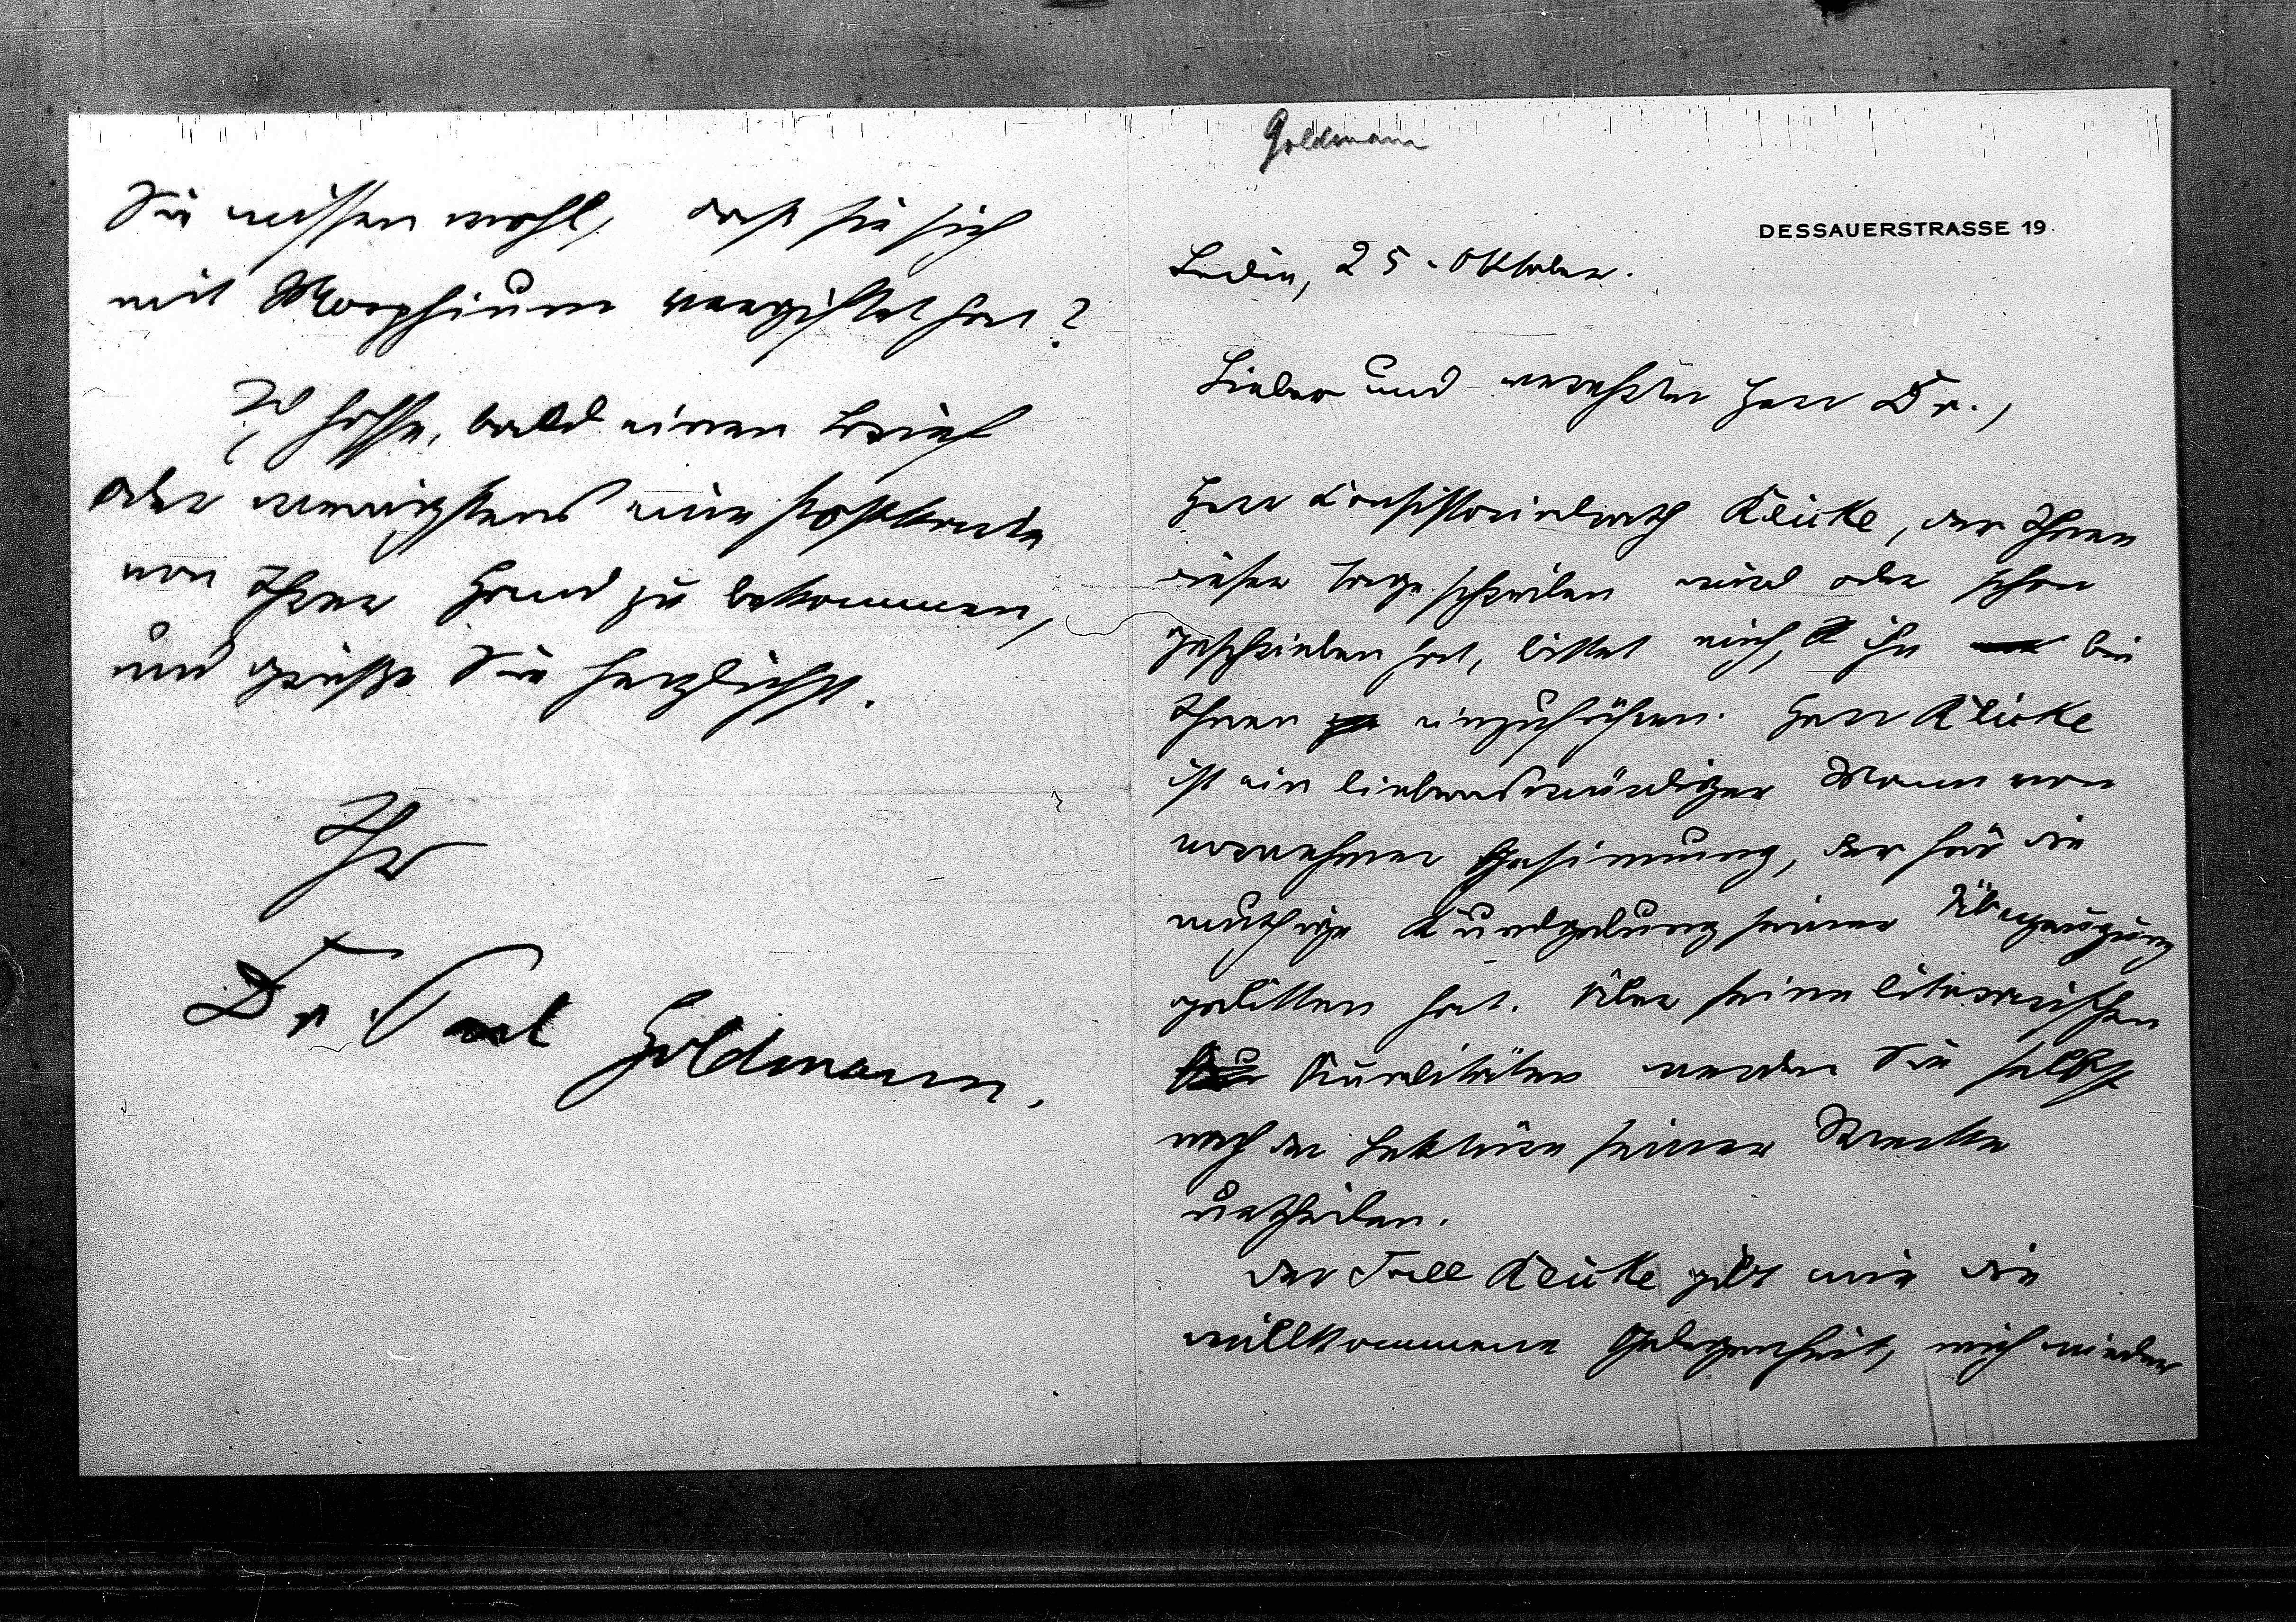 Goldmann
DESSAUERSTRASSE 19.
Berlin, 25. Oktober.
Lieber und verehrter Herr Dr.,
Herr Consistorialrath Reicke, der Ihnen
dieser Tage schreiben wird oder schon
geschrieben hat, bittet mich, ihn bei
Ihnen einzuführen. Herr Reicke
ist ein liebenswürdiger Mann von
vornehmer Gesinnung, der für die
muthige Kundgebung seiner Überzeugung
gelitten hat. Über seine literarischen
Qualitäten werden Sie selbst
nach der Lektüre seiner Werke
urtheilen.
Der Fall Reicke gibt mir die
willkommene Gelegenheit, mich wieder
Sie wissen wohl, daß sie sich
mit Morphium vergiftet hat?
Ich hoffe, bald einen Brief
oder wenigstens eine Postkarte
von Ihrer Hand zu bekommen,
und grüße Sie herzlichst.
Ihr
Dr. Paul Goldmann.